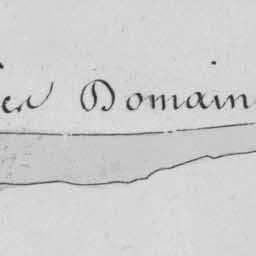 es Domain